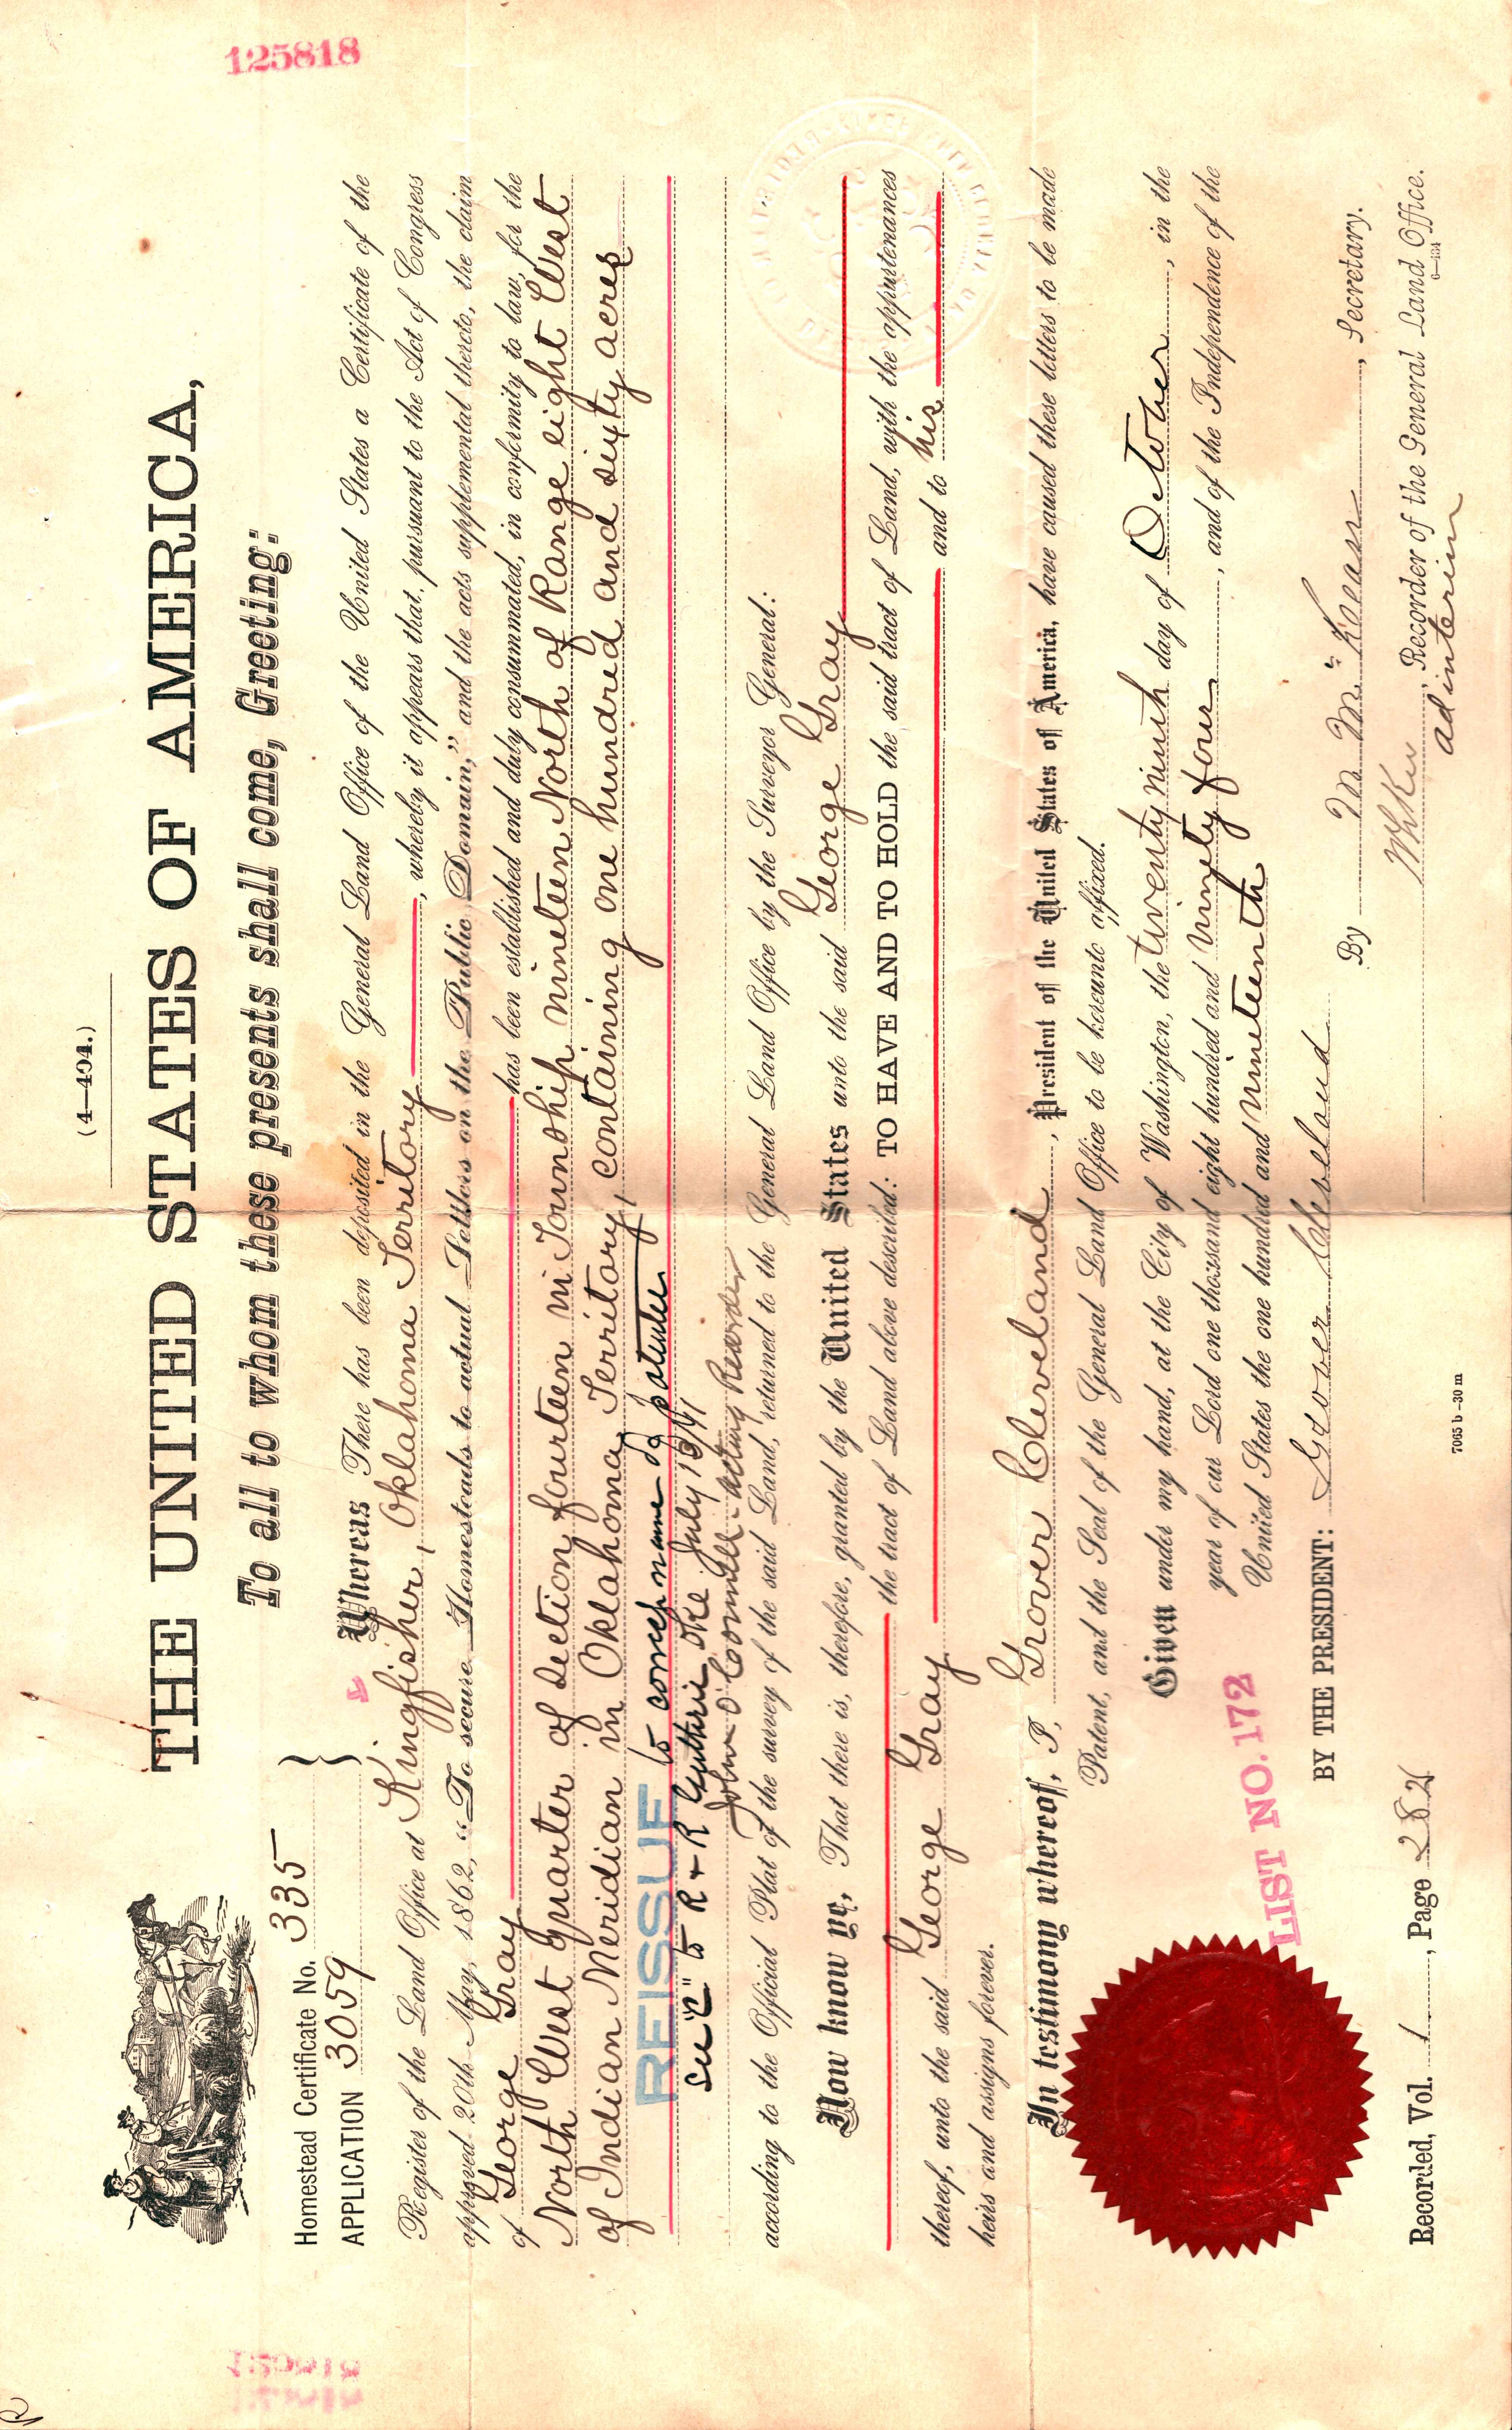 125818
(4—404.)
THE UNITED STATES OF AMERICA,
To all to whom these presents shall come, Greeting:
Homestead Certificate No. 335
APPLICATION 3059 }
Whereas There has been deposited in the General Land Office of the United States a Certificate of the
Register of the Land Office at Kingfisher, Oklahoma Territory, whereby it appears that, pursuant to the Act of Congress
approved 20th May, 1862, "To secure Homesteads to actual Settlers on the Public Domain," and the acts supplemental thereto, the claim
of George Gray has been established and duly consummated, in conformity to law, for the
North West quarter of Section fourteen in Township nineteen North of Range eight West
of Indian Meridian in Oklahoma Territory, containing one hundred and sixty acres
REISSUE to correct name of patentee
See "C" to R + R Guthrie Oke July 13/91
John O'Connell - acting Recorder
according to the Official Plat of the survey of the said Land, returned to the General Land Office by the Surveyor General:
Now know ye, That there is, therefore, granted by the United States unto the said George Gray
the tract of Land above described: TO HAVE AND TO HOLD the said tract of Land, with the appurtenances
thereof, unto the said George Gray and to his
heirs and assigns forever.
In testimony whereof, I, Grover Cleveland, President of the United States of America, have caused these letters to be made
Patent, and the Seal of the General Land Office to be hereunto affixed.
Given under my hand, at the City of Washington, the twenty ninth day of October, in the
year of our Lord one thousand eight hundred and ninety four, and of the Independence of the
United States the one hundred and nineteenth
LIST NO. 172
BY THE PRESIDENT: Grover Cleveland
By M. McKean, Secretary.
Recorded, Vol. 1, Page 282
, Recorder of the General Land Office.
ad interim
6—134
7065 b—30 m